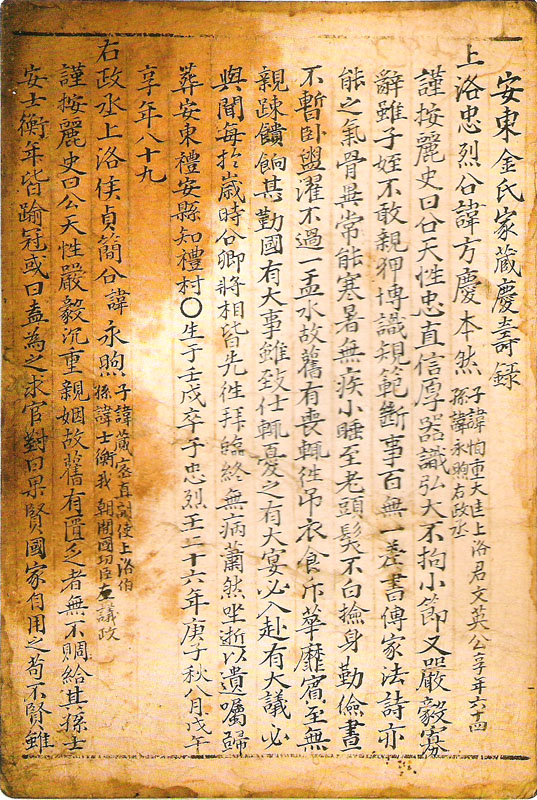 安東金氏家藏慶壽錄
上洛忠烈公諱方慶本然 子諱恂重大匡上洛君文英公享年六十四
孫諱永煦右政丞
謹按麗史曰公天性忠直信厚器識弘大不拘小節又嚴毅寡
辭雖子姪不敢親狎博識規範斷事百無一差書傳家法詩亦
能之氣骨異常能寒暑無疾小睡至老頭髮不白撿身勤儉晝
不暫卧盥濯不過一盂水故舊有喪輒徃吊衣食斥華靡宿至無
親踈饋餉甚勤國有大事雖致仕輒憂之有大宴必入赴有大議必
與聞每於歲時公卿將相皆先徃拜臨終無病蕭然坐逝以遺囑歸
葬安東禮安縣知禮村〇生于壬戌卒于忠烈王二十六年庚子秋八月戊午
享年八十九
右政丞上洛侯貞簡公諱永煦 子諱蕆密直副使上洛伯
孫諱士衡我 朝開國功臣左議政
謹按麗史曰公天性嚴毅沉重親姻故舊有匱乏者無不賙給其孫士
安士衡年皆踰冠或曰盍為之求官對曰果賢國家自用之苟不賢雖